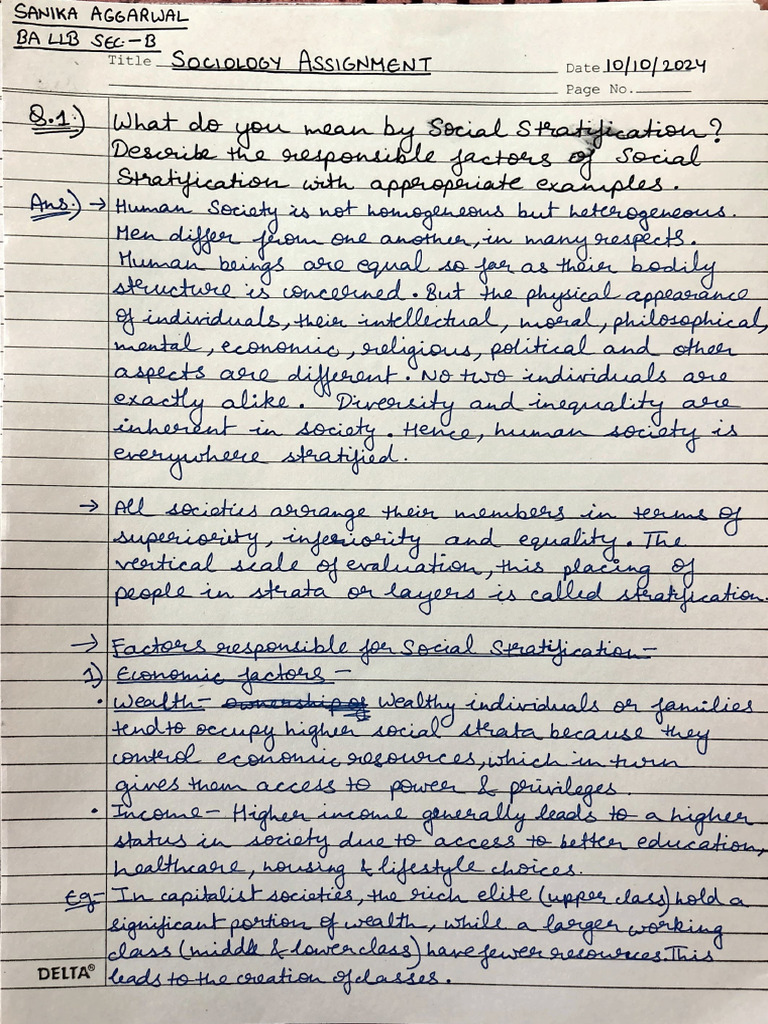 SANIKA AGGARWAL
BA LLB SEC-B
Title SOCIOLOGY ASSIGNMENT Date 10/10/2024
Page No.
Q.1) What do you mean by Social Stratification?
Describe the responsible factors of Social
Stratification with appropriate examples.
Ans.) → Human Society is not homogeneous but heterogeneous.
Men differ from one another, in many respects.
Human beings are equal so far as their bodily
structure is concerned. But the physical appearance
of individuals, their intellectual, moral, philosophical,
mental, economic, religious, political and other
aspects are different. No two individuals are
exactly alike. Diversity and inequality are
inherent in society. Hence, human society is
everywhere stratified.
→ All societies arrange their members in terms of
superiority, inferiority and equality. The
vertical scale of evaluation, this placing of
people in strata or layers is called stratification.
→ Factors responsible for Social Stratification-
1) Economic factors-
• Wealth- ownership of Wealthy individuals or families
tend to occupy higher social strata because they
control economic resources, which in turn
gives them access to power & privileges.
• Income- Higher income generally leads to a higher
status in society due to access to better education,
healthcare, housing & lifestyle choices.
Eg- In capitalist societies, the rich elite (upper class) hold a
significant portion of wealth, while a larger working
class (middle & lower class) have fewer resources. This
DELTA® leads to the creation of classes.